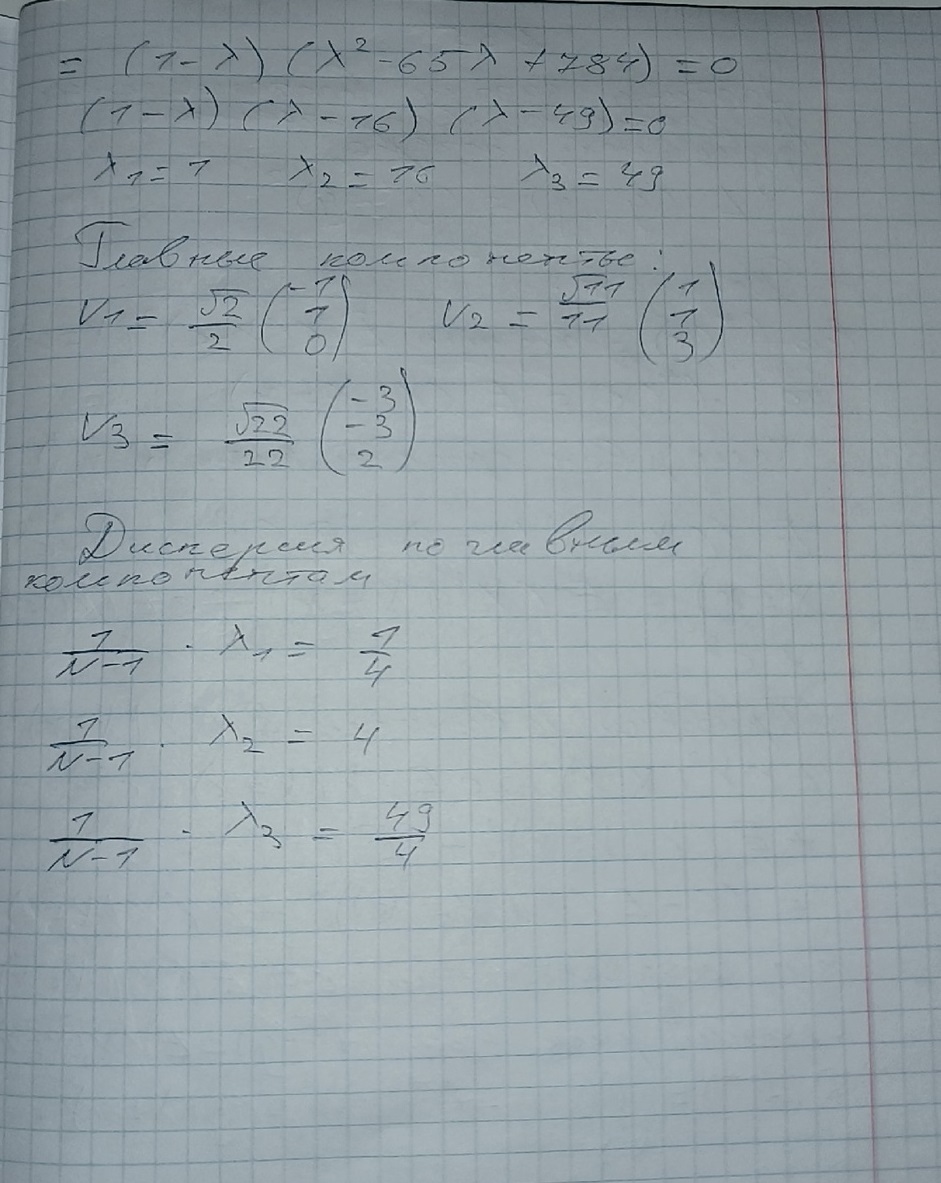 = (1-λ) (λ² - 65λ + 784) = 0
(1-λ) (λ-16) (λ-49) = 0
λ₁ = 1 λ₂ = 16 λ₃ = 49
Главные компоненты:
V₁ = √2/2 (-1 1 0) V₂ = √11/11 (1 1 3)
V₃ = √22/22 (-3 -3 2)
Дисперсия по главным
компонентам
1/(N-1) · λ₁ = 1/4
1/(N-1) · λ₂ = 4
1/(N-1) · λ₃ = 49/4